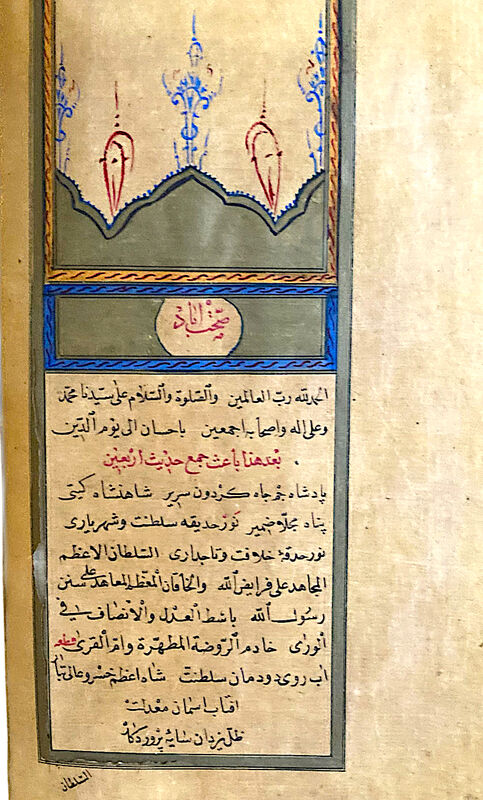 صحتاباد
الحمد لله ربّ العالمين والصّلوة والسّلام على سيّدنا محمّد
وعلى اله واصحابه اجمعين باحسان الى يوم الدّين
بعد هذا باعث جمع حديث اربعين
پادشاه جم جاه كردون سرير شاهنشاه كيتى
پناه مجلّا ضمير نور حديقه سلطنت وشهريارى
نور حدقهٔ خلافت وتاجدارى السّلطان الاعظم
المجاهد على فرايض الله والخاقان المعظّم المعاهد على سنن
رسول الله باسط العدل والانصاف فى
الورى خادم الرّوضة المطهّرة وامّ القرى قطعه
اب روى دودمان سلطنت شاه اعظم خسرو عالى تبار
افتاب اسمان معدلت
ظلّ يزدان سايهٔ پروردكار
السّلطان